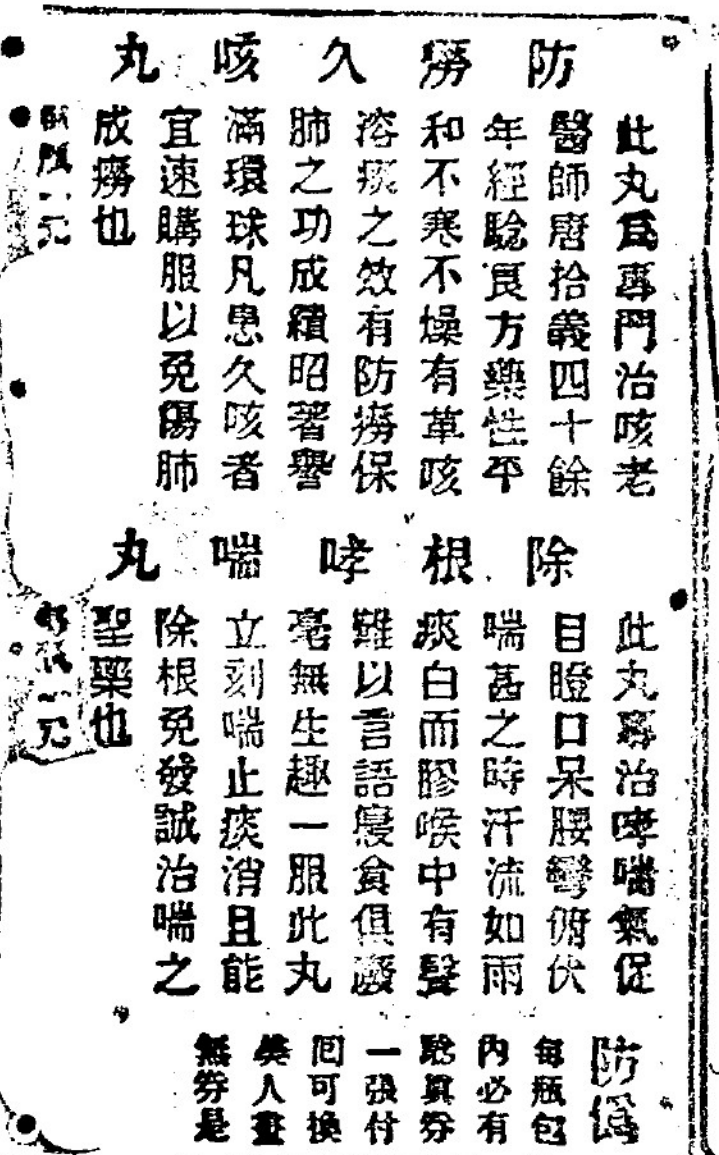 防癆久咳丸
此丸爲專門治咳老
醫師唐拾義四十餘
年經驗良方藥性平
和不寒不燥有革咳
溶痰之效有防癆保
肺之功成績昭著譽
滿環球凡患久咳者
宜速購服以免傷肺
成癆也
每瓶一元
除根哮喘丸
此丸專治哮喘氣促
目瞪口呆腰彎俯伏
喘甚之時汗流如雨
痰白而膠喉中有聲
難以言語寢食俱廢
毫無生趣一服此丸
立刻喘止痰消且能
除根免發誠治喘之
聖藥也
每瓶一元
防僞
每瓶包
內必有
驗眞券
一張付
回可換
美人畫
無券是